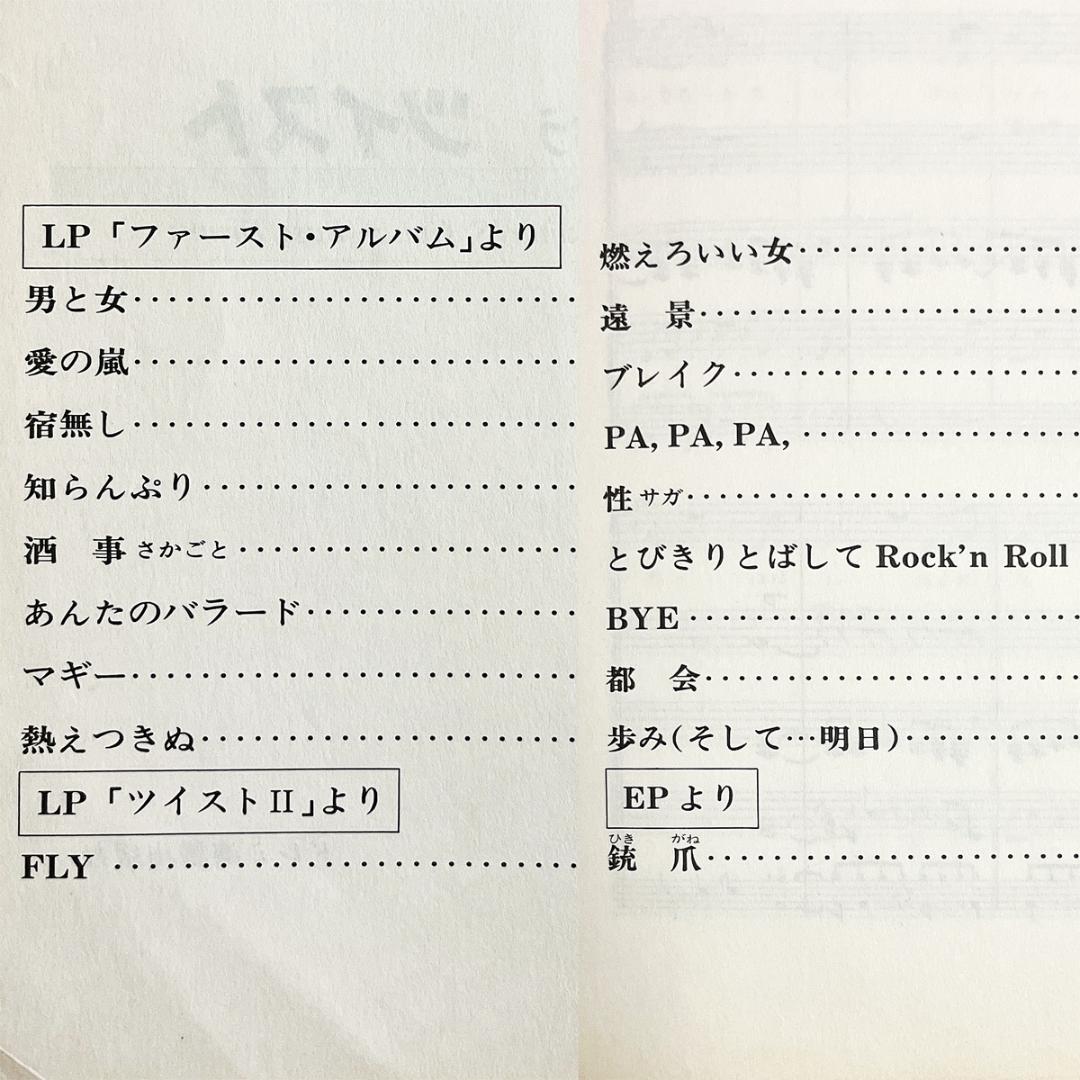 LP「ファースト・アルバム」より
男と女
愛の嵐
宿無し
知らんぷり
酒 事 さかごと
あんたのバラード
マギー
熱えつきぬ
LP「ツイストII」より
FLY
燃えろいい女
遠 景
ブレイク
PA, PA, PA,
性 サガ
とびきりとばして Rock'n Roll
BYE
都 会
歩み(そして…明日)
EPより
ひき がね
銃 爪